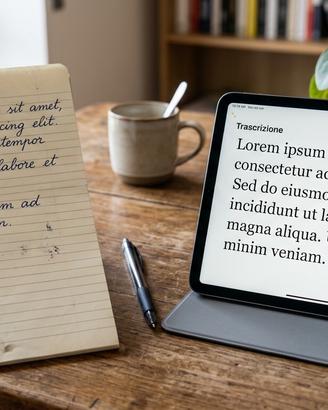 sit amet,
cing elit.
tempor
labore et
m ad
n.
Trascrizione
Lorem ipsum
consectetur ad
Sed do eiusmo
incididunt ut la
magna aliqua.
minim veniam.